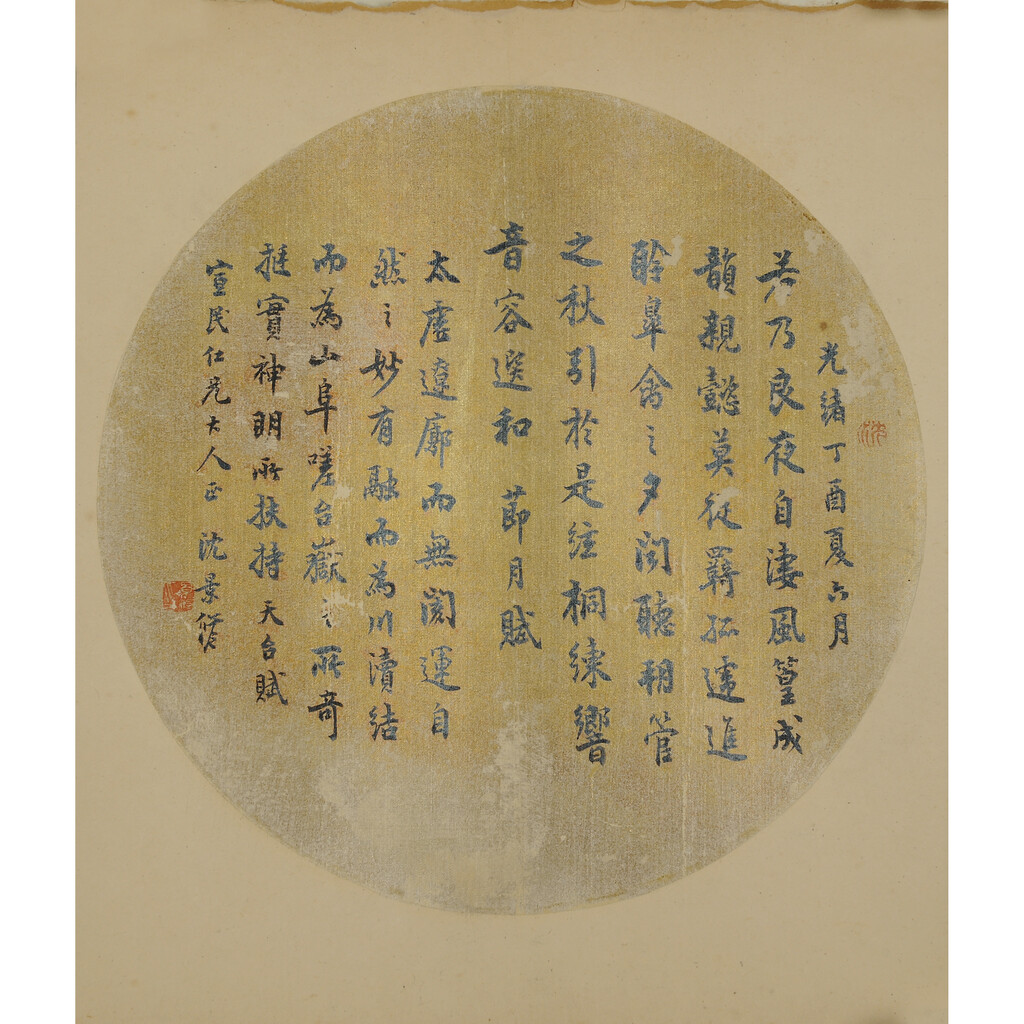 光緒丁酉夏六月
沈
若乃良夜自淒風篁成
韻親懿莫從羇孤遞進
聆皋禽之夕聞聽朔管
之秋引於是絃桐練響
音容選和 節月賦
太虛遼廓而無閡運自
然之妙有融而為川瀆結
而為山阜嗟台嶽之所奇
挺實神明所扶持 天台賦
宣民仁兄大人正 沈景修